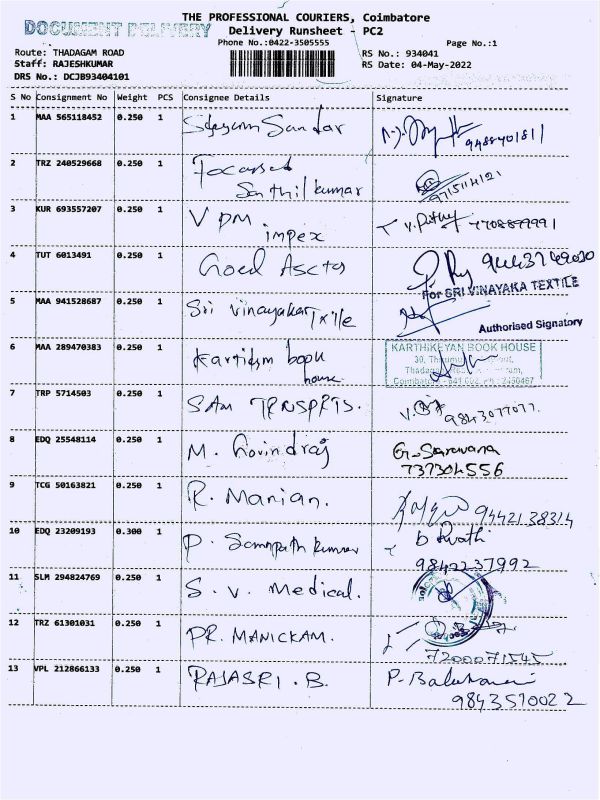 THE PROFESSIONAL COURIERS, Coimbatore
DOCUMENT DELIVERY
Delivery Runsheet - PC2
Phone No.:0422-3505555
Page No.:1
Route: THADAGAM ROAD
RS No.: 934041
Staff: RAJESHKUMAR
RS Date: 04-May-2022
DRS No.: DCJB93404101
S No Consignment No Weight PCS Consignee Details Signature
1 MAA 565118452 0.250 1 Shyam Sundar 9488401811
2 TRZ 240529668 0.250 1 Focused
Senthil kumar 9715114121
3 KUR 693557207 0.250 1 VPM
impex
4 TUT 6013491 0.250 1 Goed 9443749020
For SRI VINAYAKA TEXTILE
5 MAA 941528687 0.250 1 Sri Vinayaka Txtile
Authorised Signatory
6 MAA 289470383 0.250 1 book
house
KARTHIKEYAN BOOK HOUSE
30,
Coimbatore - 641 002. Ph : 2450467
7 TRP 5714503 0.250 1 SAM TRNSPRTS. 9843077077.
8 EDQ 25548114 0.250 1 M. Govindraj G. Sarwana
737304556
9 TCG 50163821 0.250 1 R. Manian. 9442138314
10 EDQ 23209193 0.300 1 P. Sampath kumar
9842237992
11 SLM 294824769 0.250 1 S. V. Medical.
12 TRZ 61301031 0.250 1 PR. MANICKAM.
7200071545
13 VPL 212866133 0.250 1 RAJASRI . B. P. Balu
9843570022